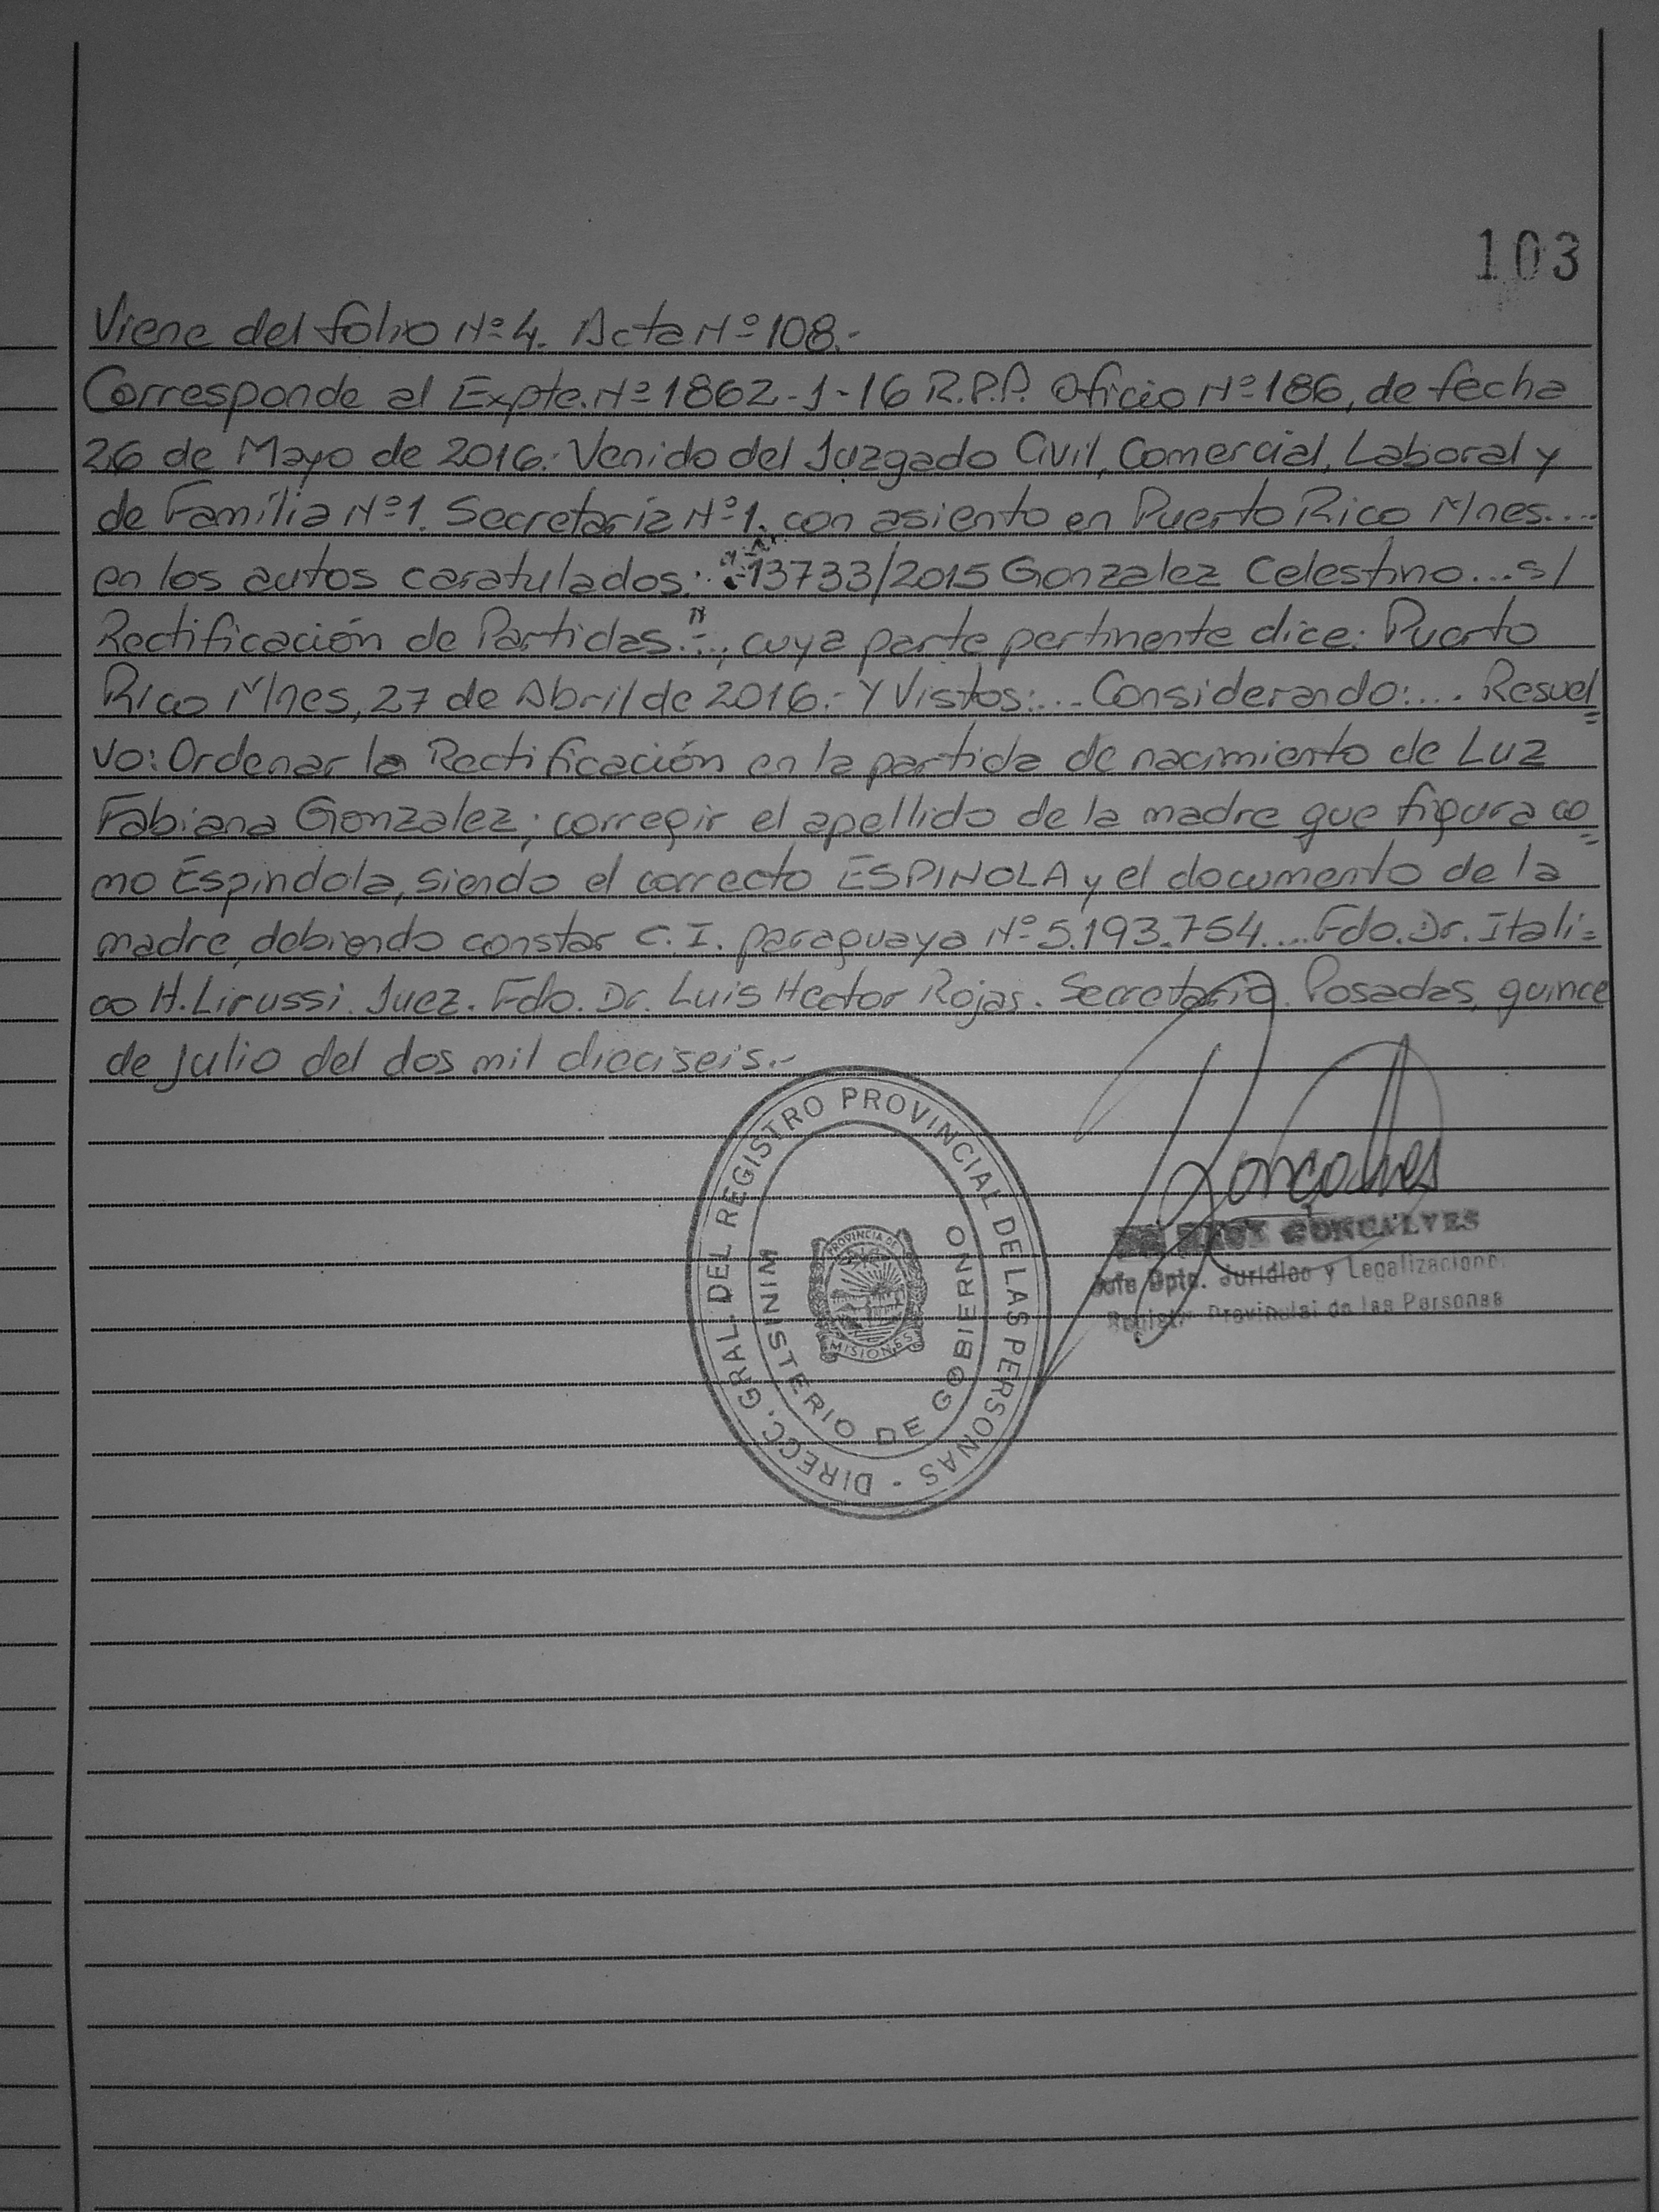 103
Viene del folio Nº 4. Acta Nº 108.-
Corresponde al Expte. Nº 1862-J-16 R.P.P. Oficio Nº 186, de fecha
26 de Mayo de 2016.- Venido del Juzgado Civil, Comercial, Laboral y
de Familia Nº 1. Secretaría Nº 1. con asiento en Puerto Rico Mnes....
en los autos caratulados: "13733/2015 Gonzalez Celestino...s/
Rectificación de Partidas"..., cuya parte pertinente dice: Puerto
Rico Mnes, 27 de Abril de 2016.- Y Vistos:... Considerando:.... Resuel
vo: Ordenar la Rectificación en la partida de nacimiento de Luz
Fabiana Gonzalez; corregir el apellido de la madre que figura co=
mo Espindola, siendo el correcto ESPINOLA y el documento de la
madre, debiendo constar C.I. paraguaya Nº 5.193.754.... Fdo. Dr. Itali=
co H. Lirussi. Juez. Fdo. Dr. Luis Hector Rojas. Secretario. Posadas, quince
de Julio del dos mil dieciseis.-
DIRECC. GRAL. DEL REGISTRO PROVINCIAL DE LAS PERSONAS -
MINISTERIO DE GOBIERNO
PROVINCIA DE
MISIONES
GONCALVES
Jefe Dpto. Jurídico y Legalizaciones
Registro Provincial de las Personas